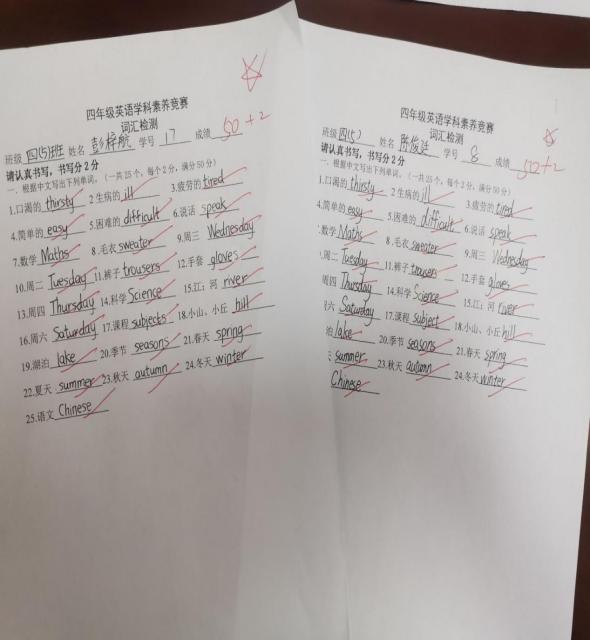 四年级英语学科素养竞赛
词汇检测
班级 四(5)班 姓名 彭梓航 学号 17 成绩 50+2
请认真书写,书写分2分
一、根据中文写出下列单词。(一共25个,每个2分,满分50分)
1.口渴的 thirsty 2 生病的 ill 3.疲劳的 tired
4.简单的 easy 5.困难的 difficult 6.说话 speak
7.数学 Maths 8.毛衣 sweater 9.周三 Wednesday
10.周二 Tuesday 11.裤子 trousers 12.手套 gloves
13.周四 Thursday 14.科学 Science 15.江;河 river
16.周六 Saturday 17.课程 subjects 18.小山,小丘 hill
19.湖泊 lake 20.季节 seasons 21.春天 spring
22.夏天 summer 23.秋天 autumn 24.冬天 winter
25.语文 Chinese
四年级英语学科素养竞赛
词汇检测
班级 四(5) 姓名 陈俊 学号 8 成绩 50+2
请认真书写,书写分2分
一、根据中文写出下列单词。(一共25个,每个2分,满分50分)
1.口渴的 thirsty 2 生病的 ill 3.疲劳的 tired
4.简单的 easy 5.困难的 difficult 6.说话 speak
数学 Maths 8.毛衣 sweater 9.周三 Wednesday
周二 Tuesday 11.裤子 trousers 12.手套 gloves
周四 Thursday 14.科学 Science 15.江;河 river
六 Saturday 17.课程 subject 18.小山,小丘 hill
泊 lake 20.季节 seasons 21.春天 spring
summer 23.秋天 autumn 24.冬天 winter
Chinese